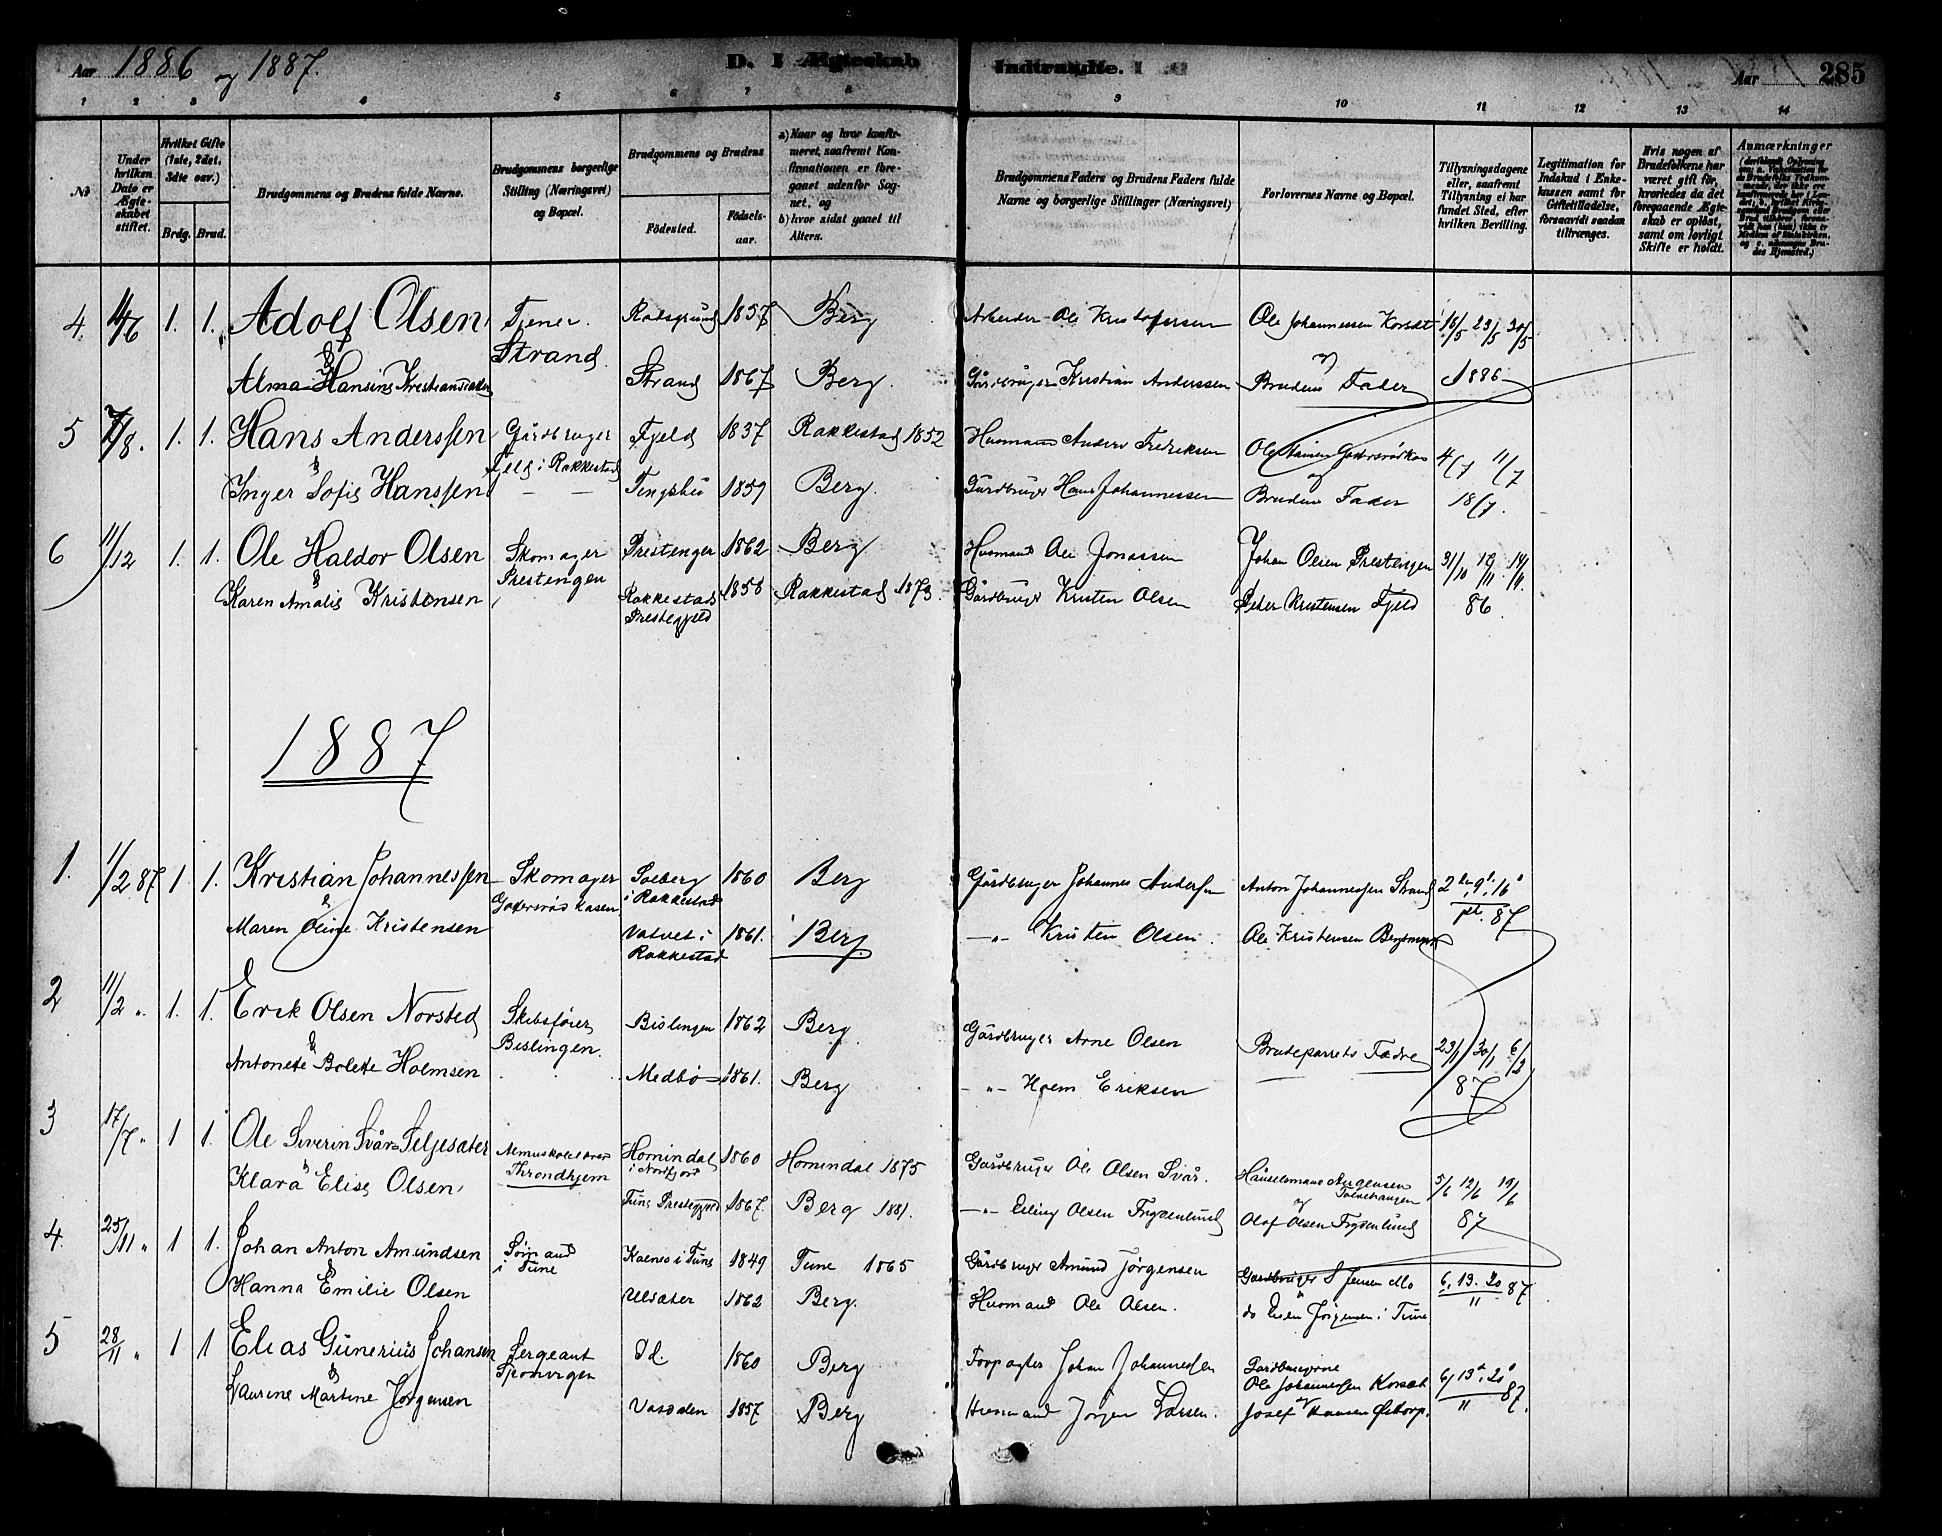 Aar 1886 og 1887.
D. I Ægteskab Indtraadte.
Aar 285
1 2 3 4 5 6 7 8 9 10 11 12 13 14
No
Under hvilken Dato er Ægteskabet stiftet.
Hvilket Gifte (1ste, 2det, 3die osv.)
Brdg. Brud.
Brudgommens og Brudens fulde Navne.
Brudgommens borgerlige Stilling (Næringsvei) og Bopæl.
Brudgommens og Brudens
Fødested. Fødselsaar.
a) Naar og hvor konfirmeret, saafremt Konfirmationen er foregaaet udenfor Sognet, og
b) hvor sidst gaaet til Alters.
Brudgommens Faders og Brudens Faders fulde Navne og borgerlige Stillinger (Næringsvei)
Forlovernes Navne og Bopæl.
Tillysningsdagene eller, saafremt Tillysning ei har fundet Sted, efter hvilken Bevilling.
Legitimation for Indskud i Enkekassen samt for Giftetilladelse, forsaavidt saadan tiltrænges.
Hvis nogen af Brudefolkene har været gift før, hvorledes da det foregaaende Ægteskab er opløst, samt om lovligt Skifte er holdt.
Anmærkninger
4. 4/6 1. 1. Adolf Olsen Tjener Strand 1857 Berg Arbeider Ole Kristofersen Ole Johannessen Korsæt 16/5 23/5 30/5
& Alma Hansine Kristiansdatter Strand 1867 Berg. Gårdbruger Kristian Anderssen og Brudens Fader 1886
5 7/8. 1. 1. Hans Anderssen Gårdbruger Fjeld i Rakkestad Fjeld 1837 Rakkestad 1852 Husmand Anders Fredriksen Ole 4/7 11/7
& Inger Sofie Hanssen — — 1859 Berg. Gårdbruger Hans Johannessen og Brudens Fader 18/7.
6 11/12 1. 1. Ole Haldor Olsen Skomager Prestengen Prestengen 1862 Berg Husmand Ole Jonassen Johan Olsen Prestengen 31/10
& Karen Amalie Kristensen Rakkestads Prestegjeld 1858 Rakkestad 1873. Gårdbruger Kristen Olsen Peder Kristensen Fjeld 86.
1887
1. 1/2 87 1 1. Kristian Johannessen Skomager Solberg i Rakkestad 1860 Berg Gårdbruger Johannes Andersen Anton Johannessen Strand
& Maren Oline Kristensen Vatvet i Rakkestad 1861. Berg. —"— Kristen Olsen. Ole Kristensen 87
2 11/2 " 1. 1. Erik Olsen Norsted Skibsfører Bislingen. Bislingen 1862 Berg. Gårdbruger Arne Olsen Brudeparrets Fædre 23/1 30/1 6/2
& Antonette Bolette Holmsen Medbø 1861. Berg —"— Holm Eriksen 87
3 17/7 " 1 1. Ole Severin Svår Seljesæter Throndhjem Hornindal i Nordfjord 1860 Hornindal 1875 Gårdbruger Ole Olsen Svår. 5/6 12/6 19/6
& Klara Elise Olsen Tune Prestegjeld 1867. Berg 1881. —"— Olsen Frydenlund og Olaf Olsen Frydenlund 87
4. 25/11 " 1 1. Johan Anton Amundsen Sømand i Tune Kalnes i Tune 1849 Tune 1865 Gårdbruger Amund Jörgensen Gårdbruger S Jensen Mo 6. 13. 20/11 87
& Hanna Emilie Olsen Ulsæter 1862 Berg. Husmand Ole Olsen. & do Jörgensen i Tune
5 28/11 " 1 1 Elias Gunerius Johansen Sergeant Id. 1860 Berg Forpagter Johan Johannessen Gårdbrugerne Ole Johannessen Korsæt 6, 13 & 20/11 87.
& Laurine Martine Jørgensen 1857 Berg Husmand Jörgen Larsen. og Josef Hansen